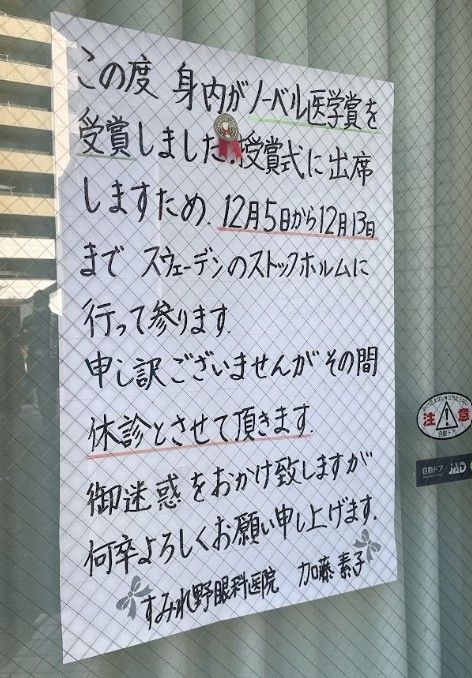 この度 身内がノーベル医学賞を
受賞しました。授賞式に出席
しますため、12月5日から12月13日
まで スウェーデンのストックホルムに
行って参ります。
申し訳ございませんがその間
休診とさせて頂きます。
御迷惑をおかけ致しますが
何卒よろしくお願い申し上げます。
すみれ野眼科医院 加藤素子
注意
自動ドア
自動ドア JAD